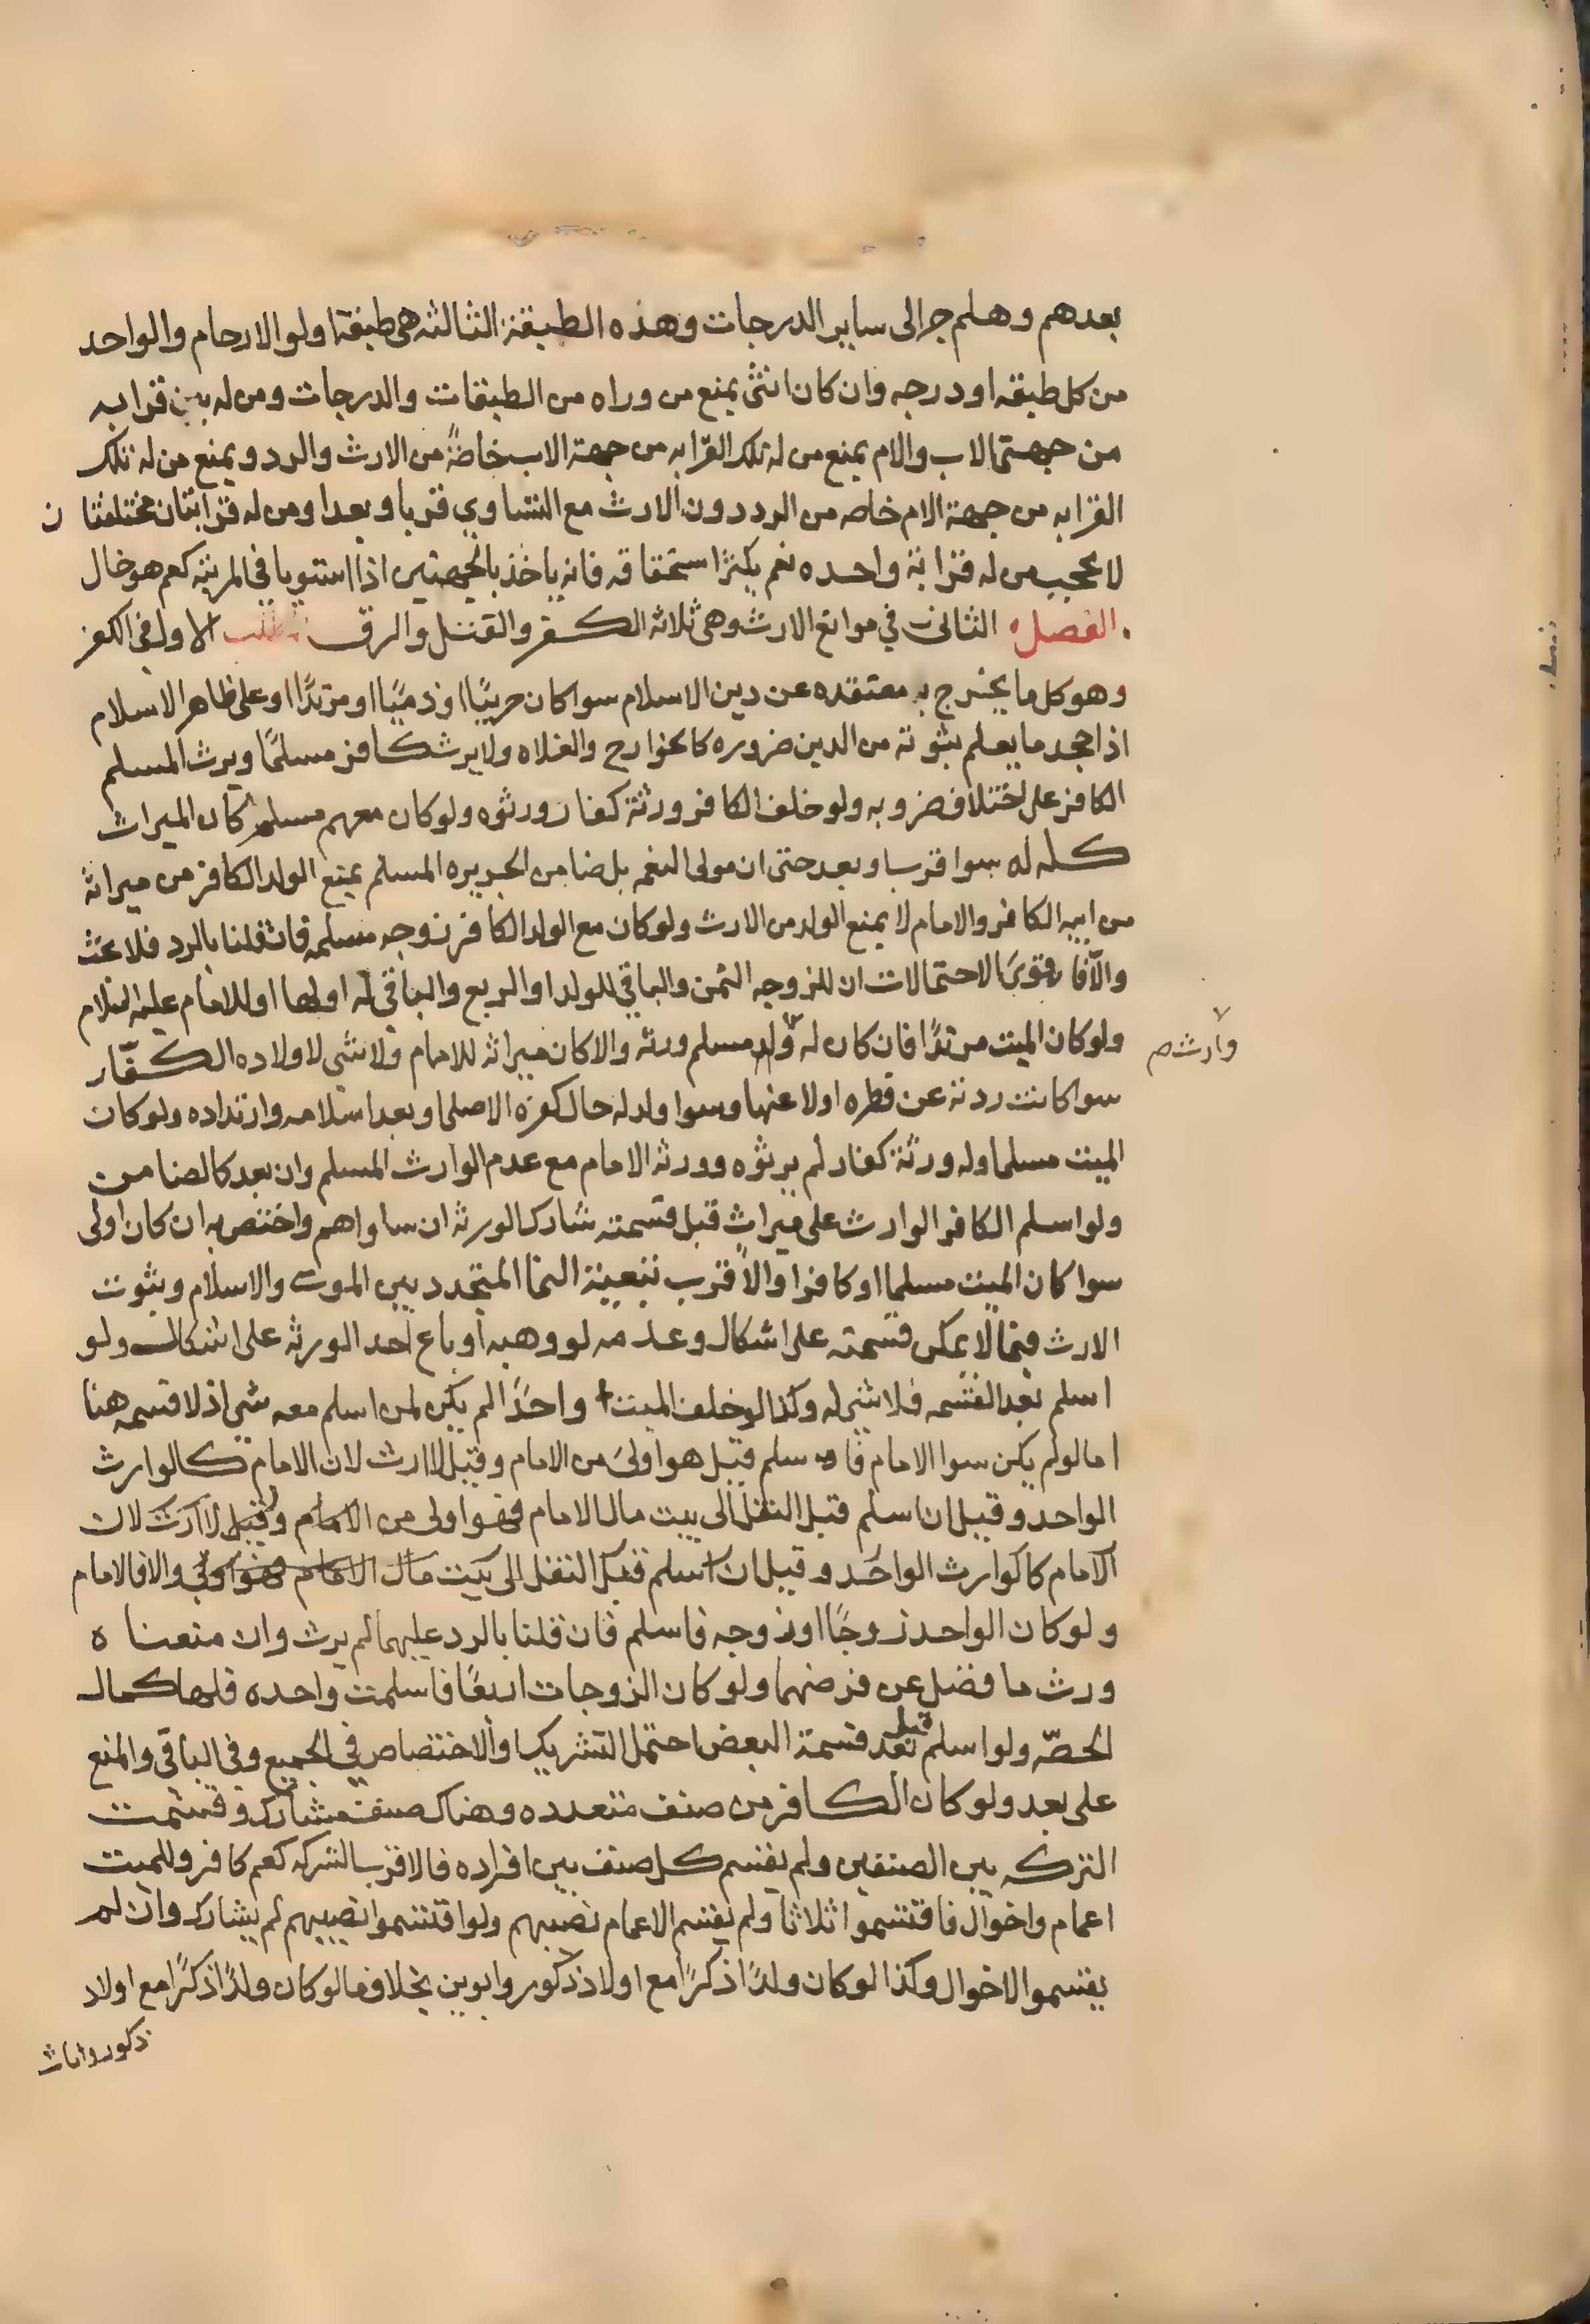 بعدهم وهلم جرا الى ساير الدرجات وهذه الطبقة الثالثه هي طبقة اولو الارحام والواحد
من كل طبقه او درجه وان كان انثى يمنع من وراه من الطبقات والدرجات ومن له قرابه
من جهتى الاب والام يمنع من له تلك القرابه من جهة الاب خاصةً من الارث والرد ويمنع من له تلك
القرابه من جهة الام خاصه من الرد دون الارث مع التساوي قربا وبعدا ومن له قرابتان مختلفتان
لا يحجب من له قرابة واحده نعم يكثر استحقاقه فانه ياخذ بالجهتين اذا استويا في المرتبه كعم هو خال
الفصل الثاني في موانع الارث وهي ثلاثه الكفر والقتل والرق الاول في الكفر
وهو كل ما يخرج به معتقده عن دين الاسلام سوا كان حربيًا او ذميًا او مرتدًا او على ظاهر الاسلام
اذا جحد ما يعلم ثبوته من الدين ضروره كالخوارج والغلاه ولا يرث كافر مسلمًا ويرث المسلم
الكافر على اختلاف ضروبه ولو خلف الكافر ورثة كفار ورثوه ولو كان معهم مسلم كان الميراث
كله له سوا قرب او بعد حتى ان مولى النعم بل ضامن الجريره المسلم يمنع الولد الكافر من ميراثه
من ابيه الكافر والامام لا يمنع الولد من الارث ولو كان مع الولد الكافر زوجه مسلمه فان قلنا بالرد فلا بحث
والّا فاقوى الاحتمالات ان للزوجه الثمن والباقي للولد او الربع والباقي له او لها او للامام عليه السلام
ولو كان الميت مرتدًا فان كان له ولد مسلم ورثه والا كان ميراثه للامام ولا شي لاولاده الكفّار
وارث صم
سوا كانت ردته عن فطره اولا عنها وسوا ولد له حال كفره الاصلي او بعد اسلامه وارتداده ولو كان
الميت مسلما وله ورثة كفار لم يرثوه وورثه الامام مع عدم الوارث المسلم وان بعد كالضامن
ولو اسلم الكافر الوارث على ميراث قبل قسمته شارك الورثه ان ساواهم واختص به ان كان اولى
سوا كان الميت مسلما او كافرا والاقرب تبعية النما المتجدد بين الموت والاسلام وثبوت
الارث فيما لا يمكن قسمته على اشكال وعدمه لو وهبه او باع احد الورثه على اشكال ولو
اسلم بعد القسمه فلا شي له وكذا لو خلف الميت واحدًا لم يكن لمن اسلم معه شي اذ لا قسمه هنا
اما لو لم يكن سوا الامام فاسلم قيل هو اولى من الامام وقيل لا ارث لان الامام كالوارث
الواحد وقيل ان اسلم قبل النقل الى بيت مال الامام فهو اولى من الامام وقيل لا ارث لان
الامام كالوارث الواحد وقيل ان اسلم قبل النقل الى بيت مال الامام فهو اولى والا فالامام
ولو كان الواحد زوجًا او زوجه فاسلم فان قلنا بالرد عليهما لم يرث وان منعناه
ورث ما فضل عن فرضهما ولو كان الزوجات اربعًا فاسلمت واحده فلها كمال
الحصّه ولو اسلم بعد قبل قسمة البعض احتمل التشريك والاختصاص في الجميع وفي الباقي والمنع
على بعد ولو كان الكافر من صنف متعدده وهناك صنف مشارك وقسمت
التركه بين الصنفين ولم يقسم كل صنف بين افراده فالاقرب الشركه كعم كافر وللميت
اعمام واخوال فاقتسموا اثلاثا ولم يقسم الاعمام نصيبهم ولو اقتسموا نصيبهم لم يشارك وان لم
يقسموا الاخوال وكذا لو كان ولدًا ذكرًا مع اولاد ذكور وابوين بخلاف ما لو كان ولدًا ذكرًا مع اولاد
ذكور واناث